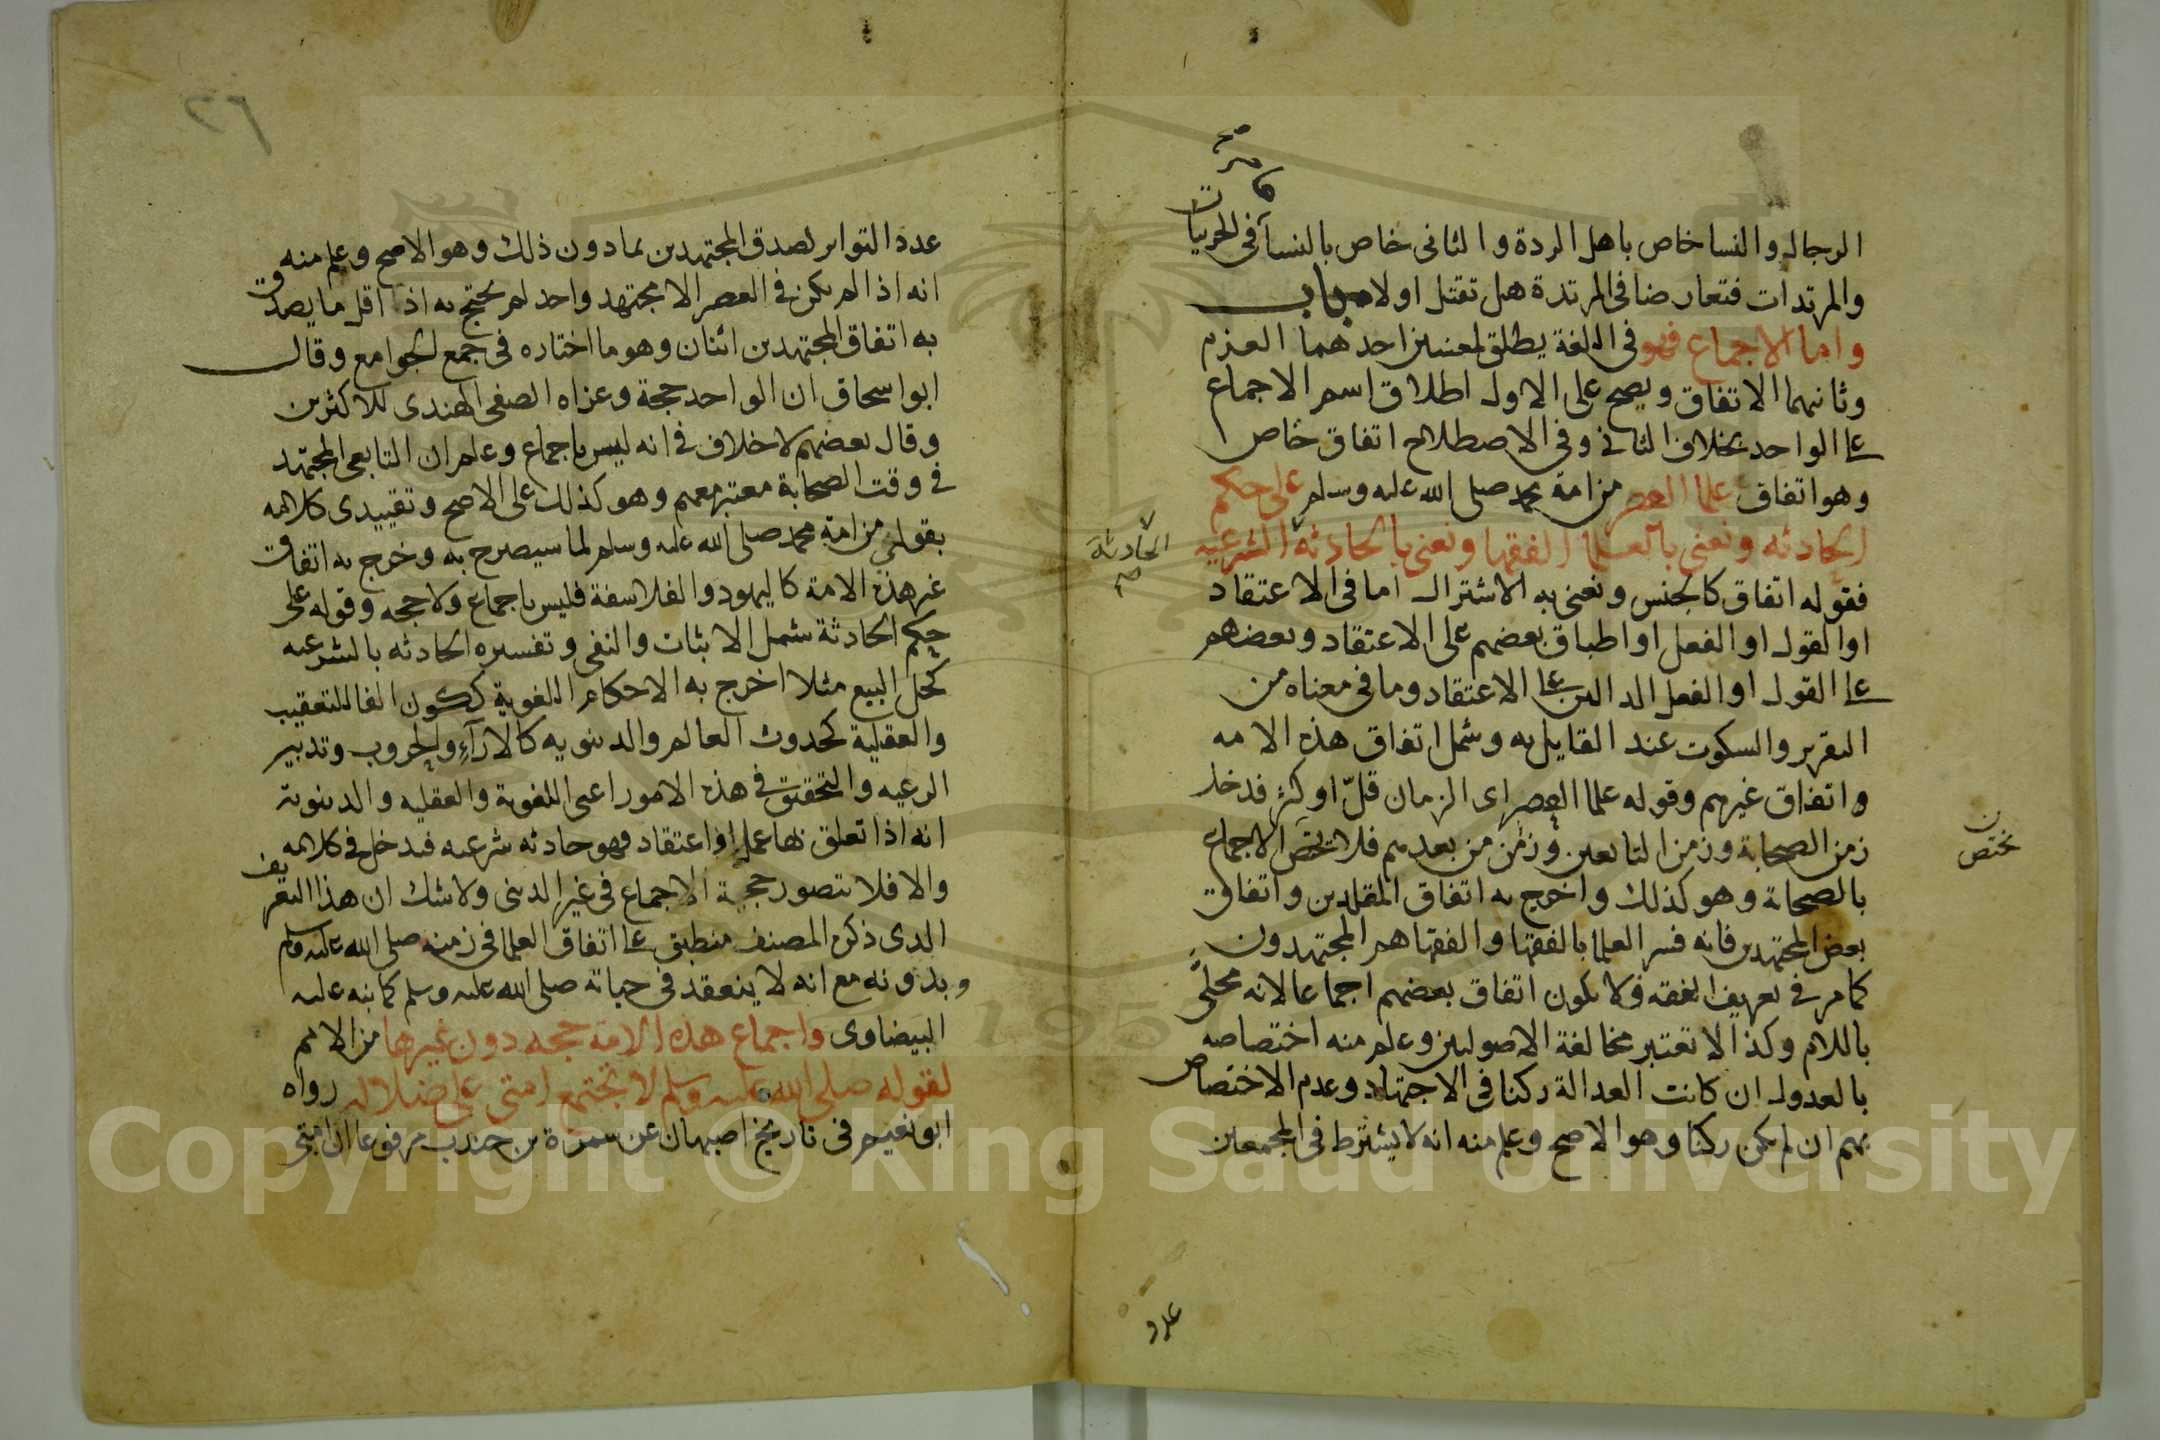 كراس
الرجال والنسا خاص باهل الردة والثانى خاص بالنسآ فى الحربيات
والمرتدات فتعارضا فى المرتدة هل تقتل اولا باب
واما الاجماع فهو فى اللغة يطلق لمعنيين احدهما العزم
وثانيهما الاتفاق ويصح على الاول اطلاق اسم الاجماع
على الواحد بخلاف الثانى وفى الاصطلاح اتفاق خاص
وهو اتفاق علما العصر من امة محمد صلى الله عليه وسلم على حكم
الحادثه ونعنى بالعلما الفقها ونعنى بالحادثه الشرعيه
الحادثة
فقوله اتفاق كالجنس ونعنى به الاشتراك اما فى الاعتقاد
او القول او الفعل او اطباق بعضهم على الاعتقاد وبعضهم
على القول او الفعل الدالين على الاعتقاد وما فى معناه من
التقرير والسكوت عند القايل به وشمل اتفاق هذه الامه
واتفاق غيرهم وقوله علما العصر اى الزمان قلّ او كثر فدخل
زمن الصحابة وزمن التابعين وزمن من بعدهم فلا يختص الاجماع
ن
يختص
بالصحابة وهو كذلك واخرج به اتفاق المقلدين واتفاق
بعض المجتهدين فانه فسر العلما بالفقها والفقها هم المجتهدون
كما مر فى تعريف الفقه فلا يكون اتفاق بعضهم اجماعا لانه محلّى
باللام وكذا لا تعتبر مخالفة الاصوليين وعلم منه اختصاصه
بالعدول ان كانت العدالة ركنا فى الاجتهاد وعدم الاختصاص
بهم ان لم يكن ركنا وهو الاصح وعلم منه انه لا يشترط فى المجمعين
عدد
٢٦
عدد التواتر لصدق المجتهدين بما دون ذلك وهو الاصح وعلم منه
انه اذا لم يكن فى العصر الا مجتهد واحد لم يحتج به اذ اقل ما يصدق
به اتفاق المجتهدين اثنان وهو ما اختاره فى جمع الجوامع وقال
ابو اسحاق ان الواحد حجة وعزاه الصفى الهندى للاكثرين
وقال بعضهم لا خلاف فى انه ليس باجماع وعلم ان التابعى المجتهد
فى وقت الصحابة معتبر معهم وهو كذلك على الاصح وتقييدى كلامه
بقولى من امة محمد صلى الله عليه وسلم لما سيصرح به وخرج به اتفاق
غير هذه الامة كاليهود والفلاسفة فليس باجماع ولا حجه وقوله على
حكم الحادثة شمل الاثبات والنفى وتفسيره الحادثه بالشرعيه
كحل البيع مثلا اخرج به الاحكام اللغوية ككون الفا للتعقيب
والعقلية كحدوث العالم والدنيويه كالارآء والحروب وتدبير
الرعيه والتحقيق فى هذه الامور اعنى اللغوية والعقليه والدنيوية
انه اذا تعلق بها عمل او اعتقاد فهو حادثه شرعيه فيدخل فى كلامه
والا فلا تتصور حجية الاجماع فى غير الدينى ولا شك ان هذا التعريف
الذى ذكره المصنف منطبق على اتفاق العلما فى زمنه صلى الله عليه وسلم
وبدونه مع انه لا ينعقد فى حياته صلى الله عليه وسلم كما نبه عليه
البيضاوى واجماع هذه الامة حجه دون غيرها من الامم
لقوله صلى الله عليه وسلم لا تجتمع امتى على ضلاله رواه
ابو نعيم فى تاريخ اصبهان عن سمرة بن جندب مرفوعا ان امتى
Copyright © King Saud University
195